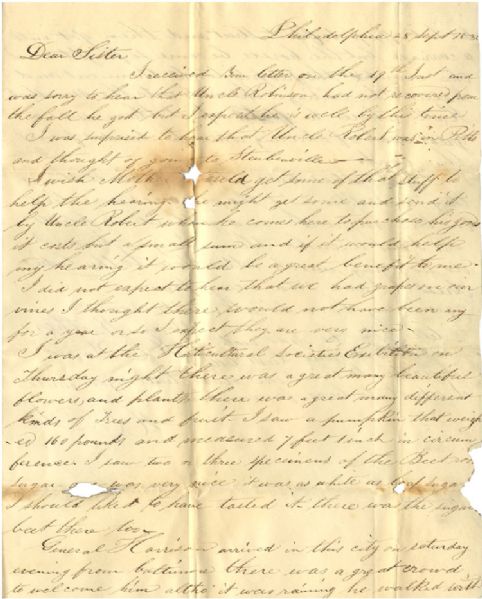 Philadelphia 28 Sept 183
Dear Sister
I received your letter on the 19th Inst and
was sorry to hear that Uncle Robinson had not recovered from
the fall he got but I expect he is well by this time
I was suprised to hear that Uncle Robert was in Pitts
and thought of going to Steubenville
I wish Mother would get some of that stuff to
help the hearing he might get some and send it
by Uncle Robert when he comes here to purchase his goods
it costs but a small sum and if it would help
my hearing it would be a great benefit to me
I did not expect to hear that we had grapes on our
vines I thought there would not have been any
for a year or so I expect they are very nice
I was at the Horticultural Societies Exibition on
Thursday night there was a great many beautiful
flowers and plants there was a great many different
kinds of Trees and fruit I saw a pumpkin that weigh
-ed 160 pounds and measured 7 feet 1 inch in circum
ference I saw two or three specimens of the Beet
sugar was very nice it was as white as loaf sugar
I should liked to have tasted it there was the sugar
beet there too
General Harrison arrived in this city on saturday
evening from baltimore there was a great crowd
to welcome him altho it was raining he walked with